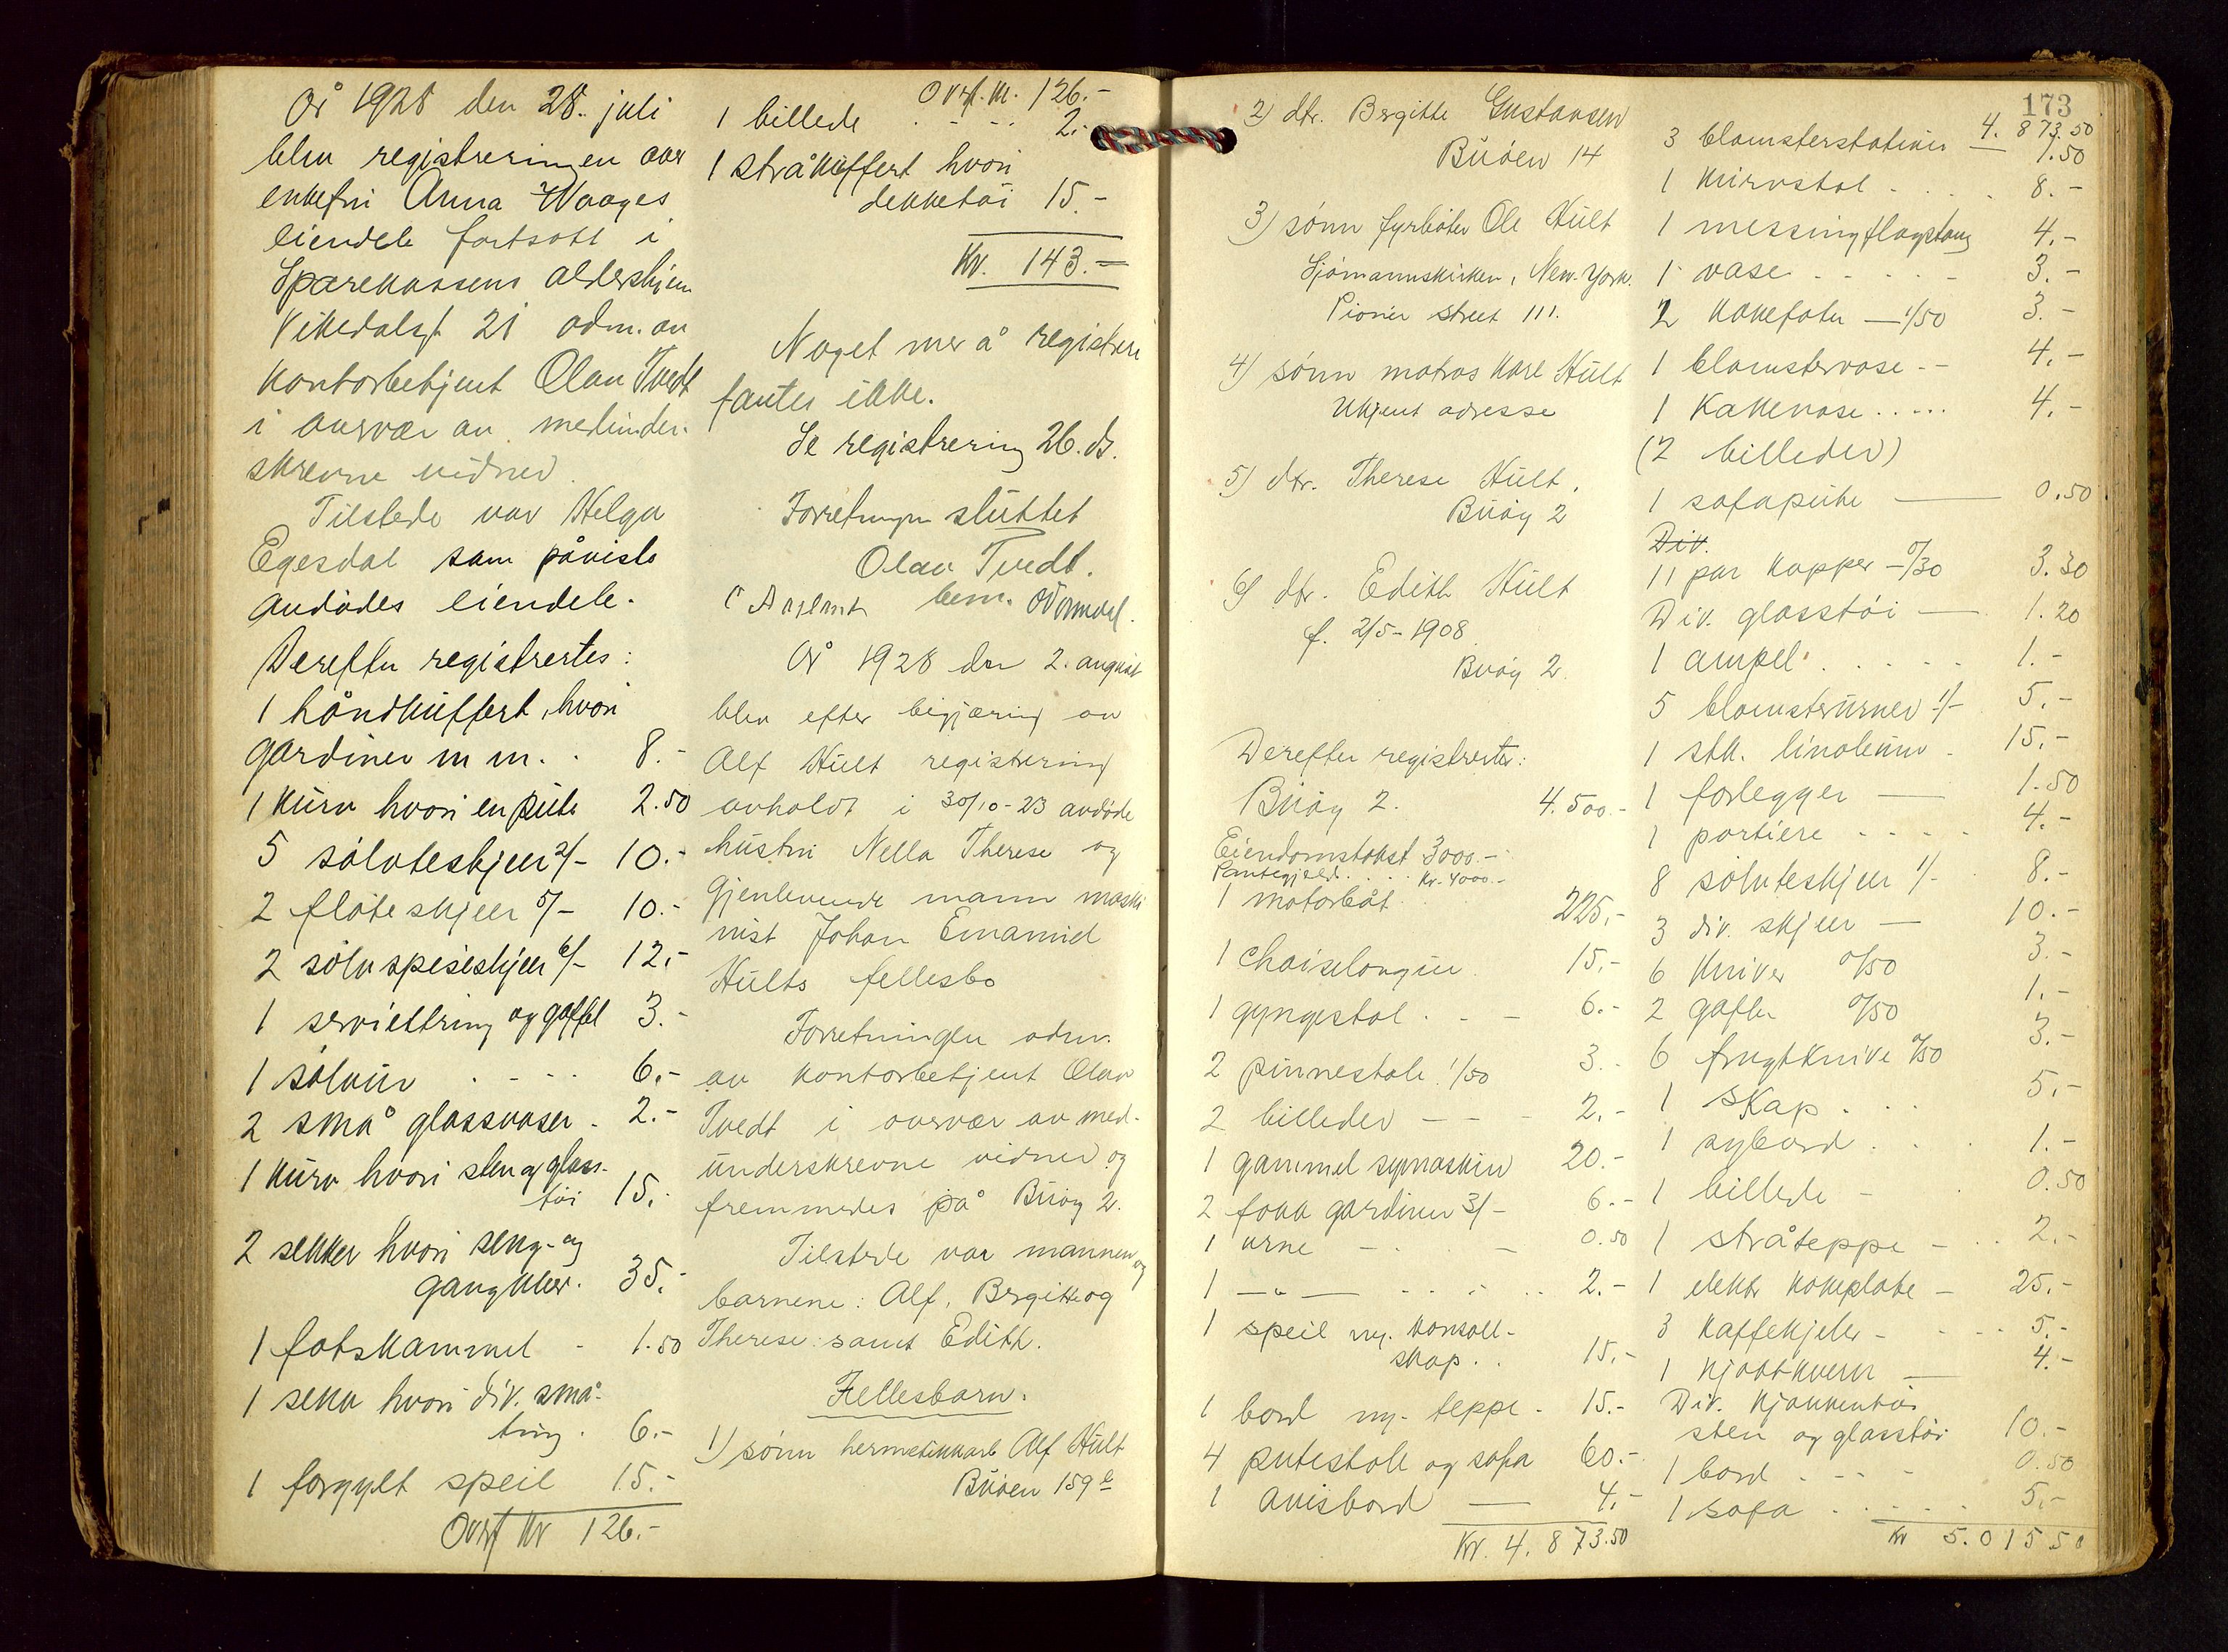 År 1928 den 28. juli
blev registreringen over
enkefru Anna Waages
eiendele fortsatt i
Sparekassens aldershjem
Vikedalsgt 21 adm. av
kontorbetjent Olav Tvedt
i overvær av medunder-
skrevne vidner.
Tilstede var Helga
Egesdal som påviste
avdødes eiendele.
Derefter registrertes:
1 håndkuffert, hvori
gardiner m m. . 8.-
1 kurv hvori en pute 2.50
5 sølvteskjeer 2/- 10.-
2 fløteskjeer 5/- 10.-
2 sølvspiseskjeer 6/- 12.-
1 serviettring og gaffel 3.-
1 sølvur . - - - 6.-
2 små glassvaser - 2.-
1 kurv hvori sten og glass-
tøi 15.-
2 sekker hvori seng- og
gangklær. 35.-
1 fotskammel - 1.50
1 sekk hvori div. små-
ting . 6.-
1 forgylt speil 15.-
Overf kr 126.-
Overf. kr. 126.-
1 billede . - - . . 2.-
1 stråkuffert hvori
dekketøi 15.-
Kr. 143.-
Noget mer å registrere
fantes ikke.
Se registrering 26. ds.
Forretningen sluttet
Olav Tvedt.
bem.
År 1928 den 2. august
blev efter begjæring av
Alf Hult registrering
avholdt i 30/10-23 avdøde
hustru Nella Therese og
gjenlevende mann maski
nist Johan Emanuel
Hults fellesbo
Forretningen adm.
av kontorbetjent Olav
Tvedt i overvær av med-
underskrevne vidner og
fremmedes på Buøy 2.
Tilstede var mannen og
barnene: Alf, Bergitte og
Therese samt Edith.
Fellesbarn.
1) sønn hermetikkarb Alf Hult
Buøen 159 b
2) dtr. Bergitte Gustavsen
Buøen 14
3) sønn fyrbøter Ole Hult
Sjømannskirken, New-York.
Pionér street 111.
4) sønn matros Kare Hult
Ukjent adresse
5) dtr. Therese Hult.
Buøy 2
6) dtr. Edith Hult
f. 2/5-1908
Buøy 2.
Derefter registrertes:
Buøy 2. 4.500.-
Eiendomstakst 3000.-
Pantegjeld. . . . Kr. 4000.-
1 motorbåt 225.-
1 chaiselongue 15.-
1 gyngestol . - - 6.-
2 pinnestole 1/50 3.-
2 billeder - - - 2.-
1 gammel symaskin 20.-
2 fakk gardiner 3/- 6.-
1 urne - . - 0.50
1 -"- . . . . 2.-
1 speil m. konsoll-
skap . . 15.-
1 bord m. teppe - 15.-
4 putestole og sofa 60.-
1 avisbord — 4.-
Kr. 4.873.50
173
4.873.50
3 blomsterstativer — 1.50
1 kurvstol . . . . 8.-
1 messingflagstang 4.-
1 vase . - - - - 3.-
2 kakefater — 1/50 3.-
1 blomstervase - - 4.-
1 kakkevase . . . . . 4.-
(2 billeder)
1 sofapute — 0.50
Div.
11 par kopper - 0/30 3.30
Div. glasstøi — 1.20
1 ampel . . - - - 1.-
5 blomsterurner 1/- 5.-
1 stk. linoleum - 15.-
1 forlegger — 1.50
1 portiere - - - - 4.-
8 sølvteskjeer 1/- 8.-
3 div. skjeer — 10.-
6 kniver 0/50 3.-
2 gafler 0/50 1.-
6 frugtknive 0/50 3.-
1 skap . . . 5.-
1 sybord . . . 1.-
1 billede - . 0.50
1 stråteppe - . . 2.-
1 elektr kokeplate - 25.-
3 kaffekjeler - - - - 5.-
1 kjøttkvern — 4.-
Div. kjøkkentøi
sten og glasstøi 10.-
1 bord . - - - 0.50
1 sofa . . . . . . 5.-
Kr 5.015.50